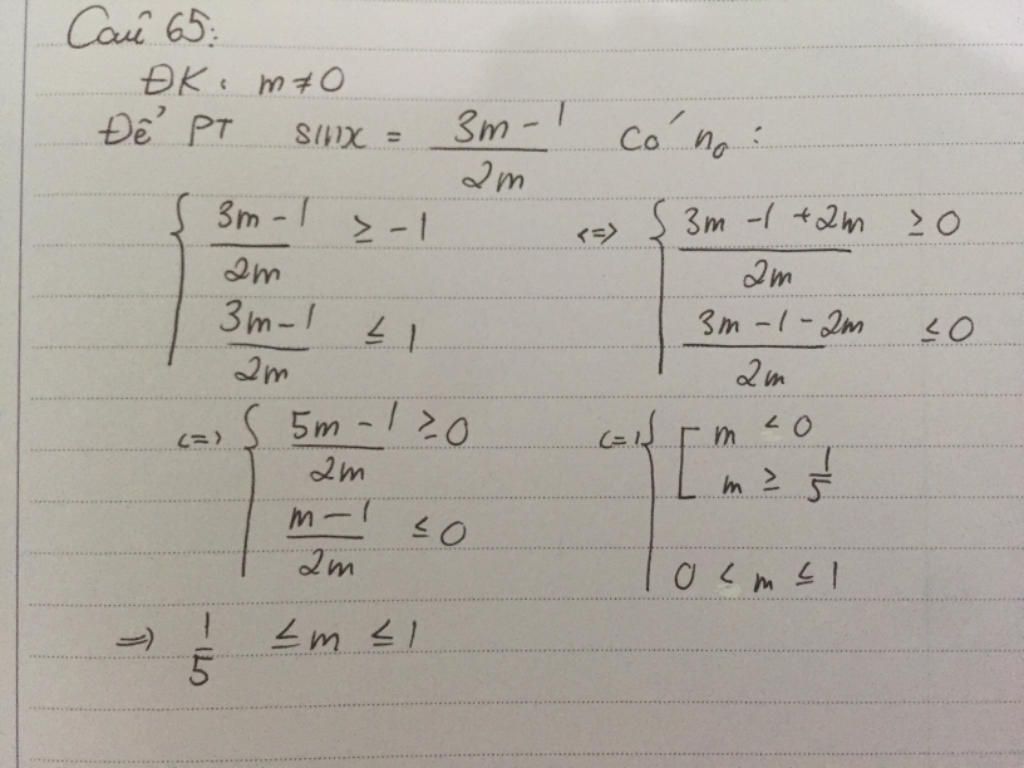 Câu 65:
ĐK: m ≠ 0
Để PT sinx = (3m - 1)/(2m) có n₀:
{ (3m - 1)/(2m) ≥ -1 ; (3m - 1)/(2m) ≤ 1 <=> { (3m - 1 + 2m)/(2m) ≥ 0 ; (3m - 1 - 2m)/(2m) ≤ 0
<=> { (5m - 1)/(2m) ≥ 0 ; (m - 1)/(2m) ≤ 0 <=> { [ m < 0 ; m ≥ 1/5 ; 0 < m ≤ 1
=> 1/5 ≤ m ≤ 1